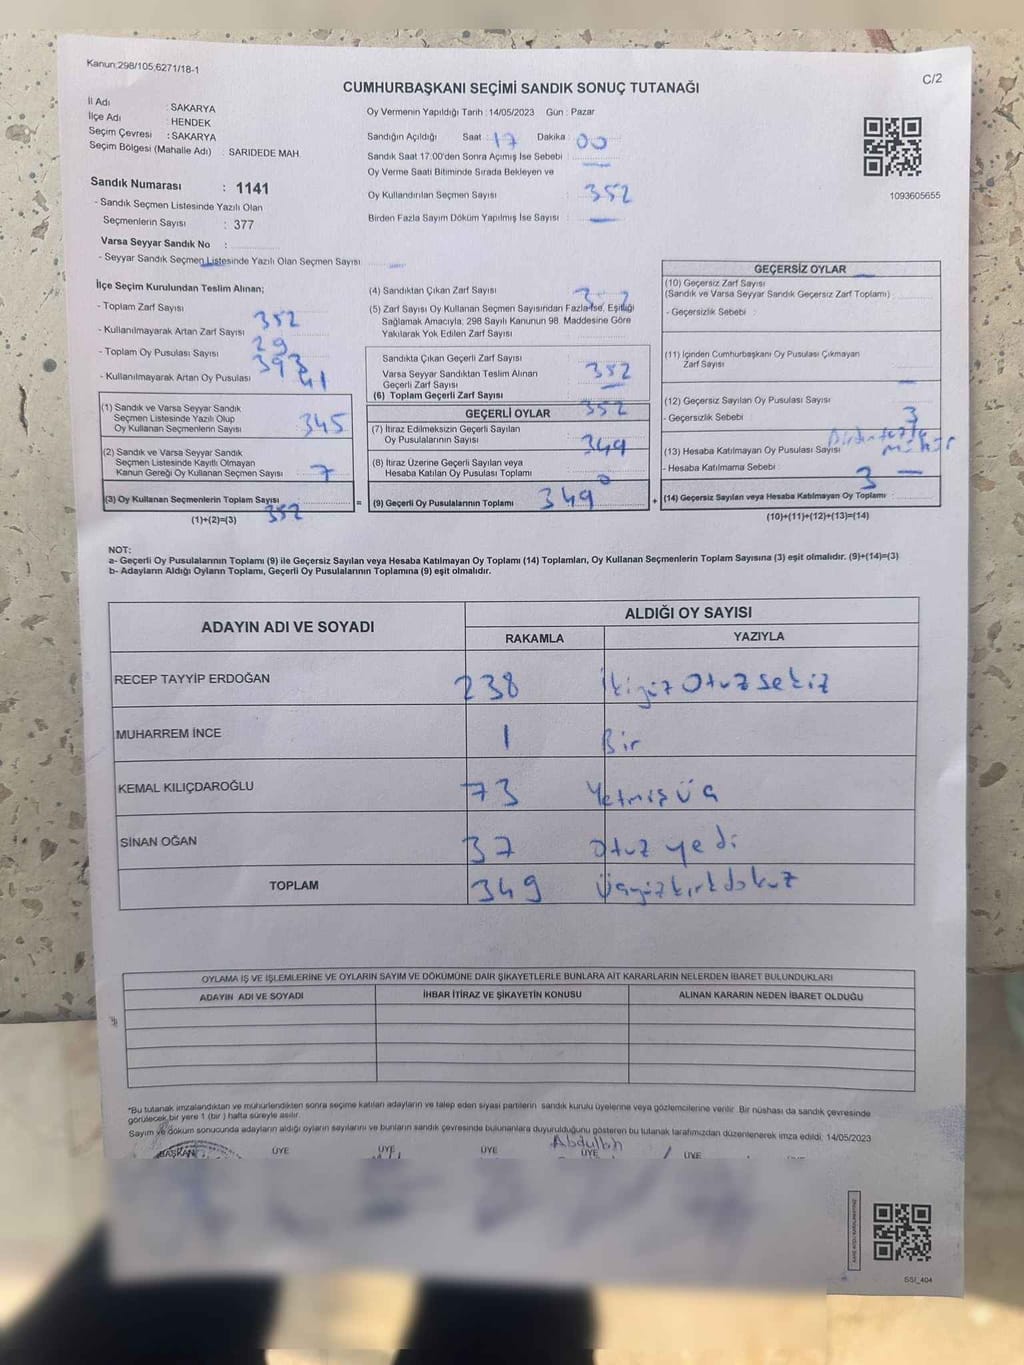 Kanun:298/105;6271/18-1
C/2
CUMHURBAŞKANI SEÇİMİ SANDIK SONUÇ TUTANAĞI
İl Adı : SAKARYA
İlçe Adı : HENDEK
Seçim Çevresi : SAKARYA
Seçim Bölgesi (Mahalle Adı) : SARIDEDE MAH.
Sandık Numarası : 1141
- Sandık Seçmen Listesinde Yazılı Olan
Seçmenlerin Sayısı : 377
Varsa Seyyar Sandık No :
- Seyyar Sandık Seçmen Listesinde Yazılı Olan Seçmen Sayısı —
Oy Vermenin Yapıldığı Tarih : 14/05/2023 Gün : Pazar
Sandığın Açıldığı Saat : 17 Dakika : 00
Sandık Saat 17:00'den Sonra Açımış İse Sebebi : —
Oy Verme Saati Bitiminde Sırada Bekleyen ve
Oy Kullandırılan Seçmen Sayısı : 352
Birden Fazla Sayım Döküm Yapılmış İse Sayısı : —
1093605655
İlçe Seçim Kurulundan Teslim Alınan;
- Toplam Zarf Sayısı 352
- Kullanılmayarak Artan Zarf Sayısı 29
- Toplam Oy Pusulası Sayısı 393
- Kullanılmayarak Artan Oy Pusulası 41
(1) Sandık ve Varsa Seyyar Sandık
Seçmen Listesinde Yazılı Olup
Oy Kullanan Seçmenlerin Sayısı 345
(2) Sandık ve Varsa Seyyar Sandık
Seçmen Listesinde Kayıtlı Olmayan
Kanun Gereği Oy Kullanan Seçmen Sayısı 7
(3) Oy Kullanan Seçmenlerin Toplam Sayısı 352
(1)+(2)=(3)
=
(4) Sandıktan Çıkan Zarf Sayısı
(5) Zarf Sayısı Oy Kullanan Seçmen Sayısından Fazla İse, Eşitliği
Sağlamak Amacıyla, 298 Sayılı Kanunun 98. Maddesine Göre
Yakılarak Yok Edilen Zarf Sayısı
Sandıkta Çıkan Geçerli Zarf Sayısı 352
Varsa Seyyar Sandıktan Teslim Alınan
Geçerli Zarf Sayısı —
(6) Toplam Geçerli Zarf Sayısı 352
GEÇERLİ OYLAR
(7) İtiraz Edilmeksizin Geçerli Sayılan
Oy Pusulalarının Sayısı 349
(8) İtiraz Üzerine Geçerli Sayılan veya
Hesaba Katılan Oy Pusulası Toplamı 0
(9) Geçerli Oy Pusulalarının Toplamı 349
+
GEÇERSİZ OYLAR
(10) Geçersiz Zarf Sayısı —
(Sandık ve Varsa Seyyar Sandık Geçersiz Zarf Toplamı)
- Geçersizlik Sebebi :
(11) İçinden Cumhurbaşkanı Oy Pusulası Çıkmayan
Zarf Sayısı —
(12) Geçersiz Sayılan Oy Pusulası Sayısı 3
- Geçersizlik Sebebi : Birden fazla mühür
(13) Hesaba Katılmayan Oy Pusulası Sayısı —
- Hesaba Katılmama Sebebi :
(14) Geçersiz Sayılan veya Hesaba Katılmayan Oy Toplamı 3
(10)+(11)+(12)+(13)=(14)
NOT:
a- Geçerli Oy Pusulalarının Toplamı (9) ile Geçersiz Sayılan veya Hesaba Katılmayan Oy Toplamı (14) Toplamları, Oy Kullanan Seçmenlerin Toplam Sayısına (3) eşit olmalıdır. (9)+(14)=(3)
b- Adayların Aldığı Oyların Toplamı, Geçerli Oy Pusulalarının Toplamına (9) eşit olmalıdır.
ADAYIN ADI VE SOYADI ALDIĞI OY SAYISI
RAKAMLA YAZIYLA
RECEP TAYYİP ERDOĞAN 238 İkiyüz Otuz sekiz
MUHARREM İNCE 1 Bir
KEMAL KILIÇDAROĞLU 73 Yetmiş üç
SİNAN OĞAN 37 Otuz yedi
TOPLAM 349 Üçyüz kırk dokuz
OYLAMA İŞ VE İŞLEMLERİNE VE OYLARIN SAYIM VE DÖKÜMÜNE DAİR ŞİKAYETLERLE BUNLARA AİT KARARLARIN NELERDEN İBARET BULUNDUKLARI
ADAYIN ADI VE SOYADI İHBAR İTİRAZ VE ŞİKAYETİN KONUSU ALINAN KARARIN NEDEN İBARET OLDUĞU
*Bu tutanak imzalandıktan ve mühürlendikten sonra seçime katılan adayların ve talep eden siyasi partilerin sandık kurulu üyelerine veya gözlemcilerine verilir. Bir nüshası da sandık çevresinde
görülecek bir yere 1 (bir ) hafta süreyle asılır.
Sayım ve döküm sonucunda adayların aldığı oyların sayılarını ve bunların sandık çevresinde bulunanlara duyurulduğunu gösteren bu tutanak tarafımızdan düzenlenerek imza edildi. 14/05/2023
Abdullah
BAŞKAN ÜYE ÜYE ÜYE ÜYE ÜYE
SSI_404